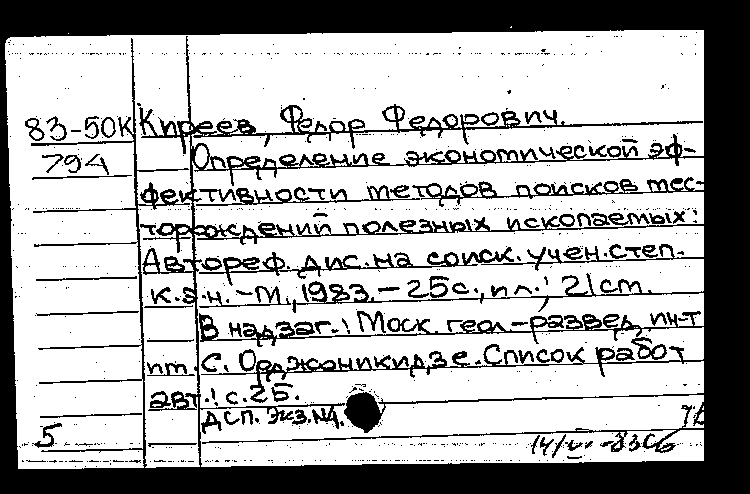 83-50К Киреев, Федор Федорович.
794 Определение экономической эф-
фективности методов поисков мес-
торождений полезных ископаемых:
Автореф. дис. на соиск. учен. степ.
к.э.н. - М., 1983. - 25с., ил.; 21см.
В надзаг.: Моск. геол-развед, ин-т
им. С. Орджоникидзе. Список работ
авт.: с.25.
ДСП. Экз.№4.
5